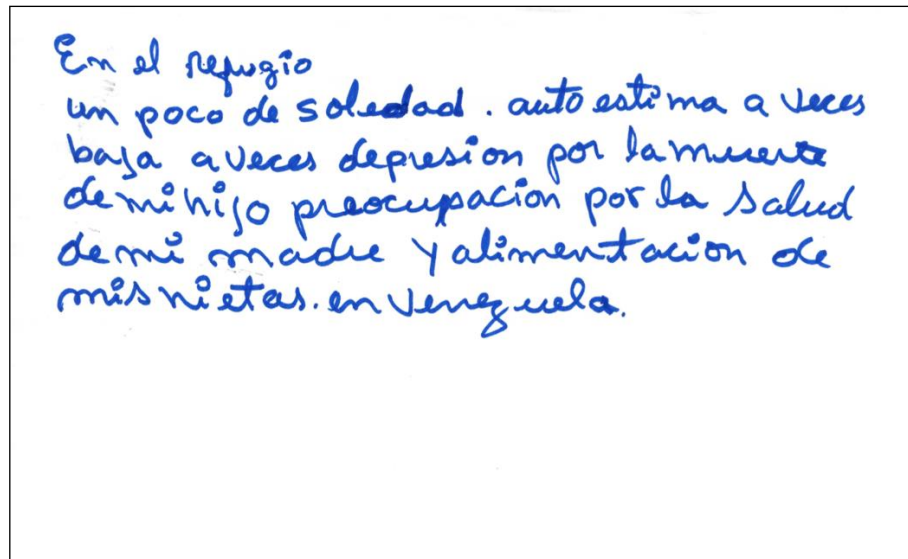 En el refugio
un poco de soledad. auto estima a veces
baja a veces depresion por la muerte
de mi hijo preocupación por la salud
de mi madre y alimentacion de
mis nietas. en Venezuela.